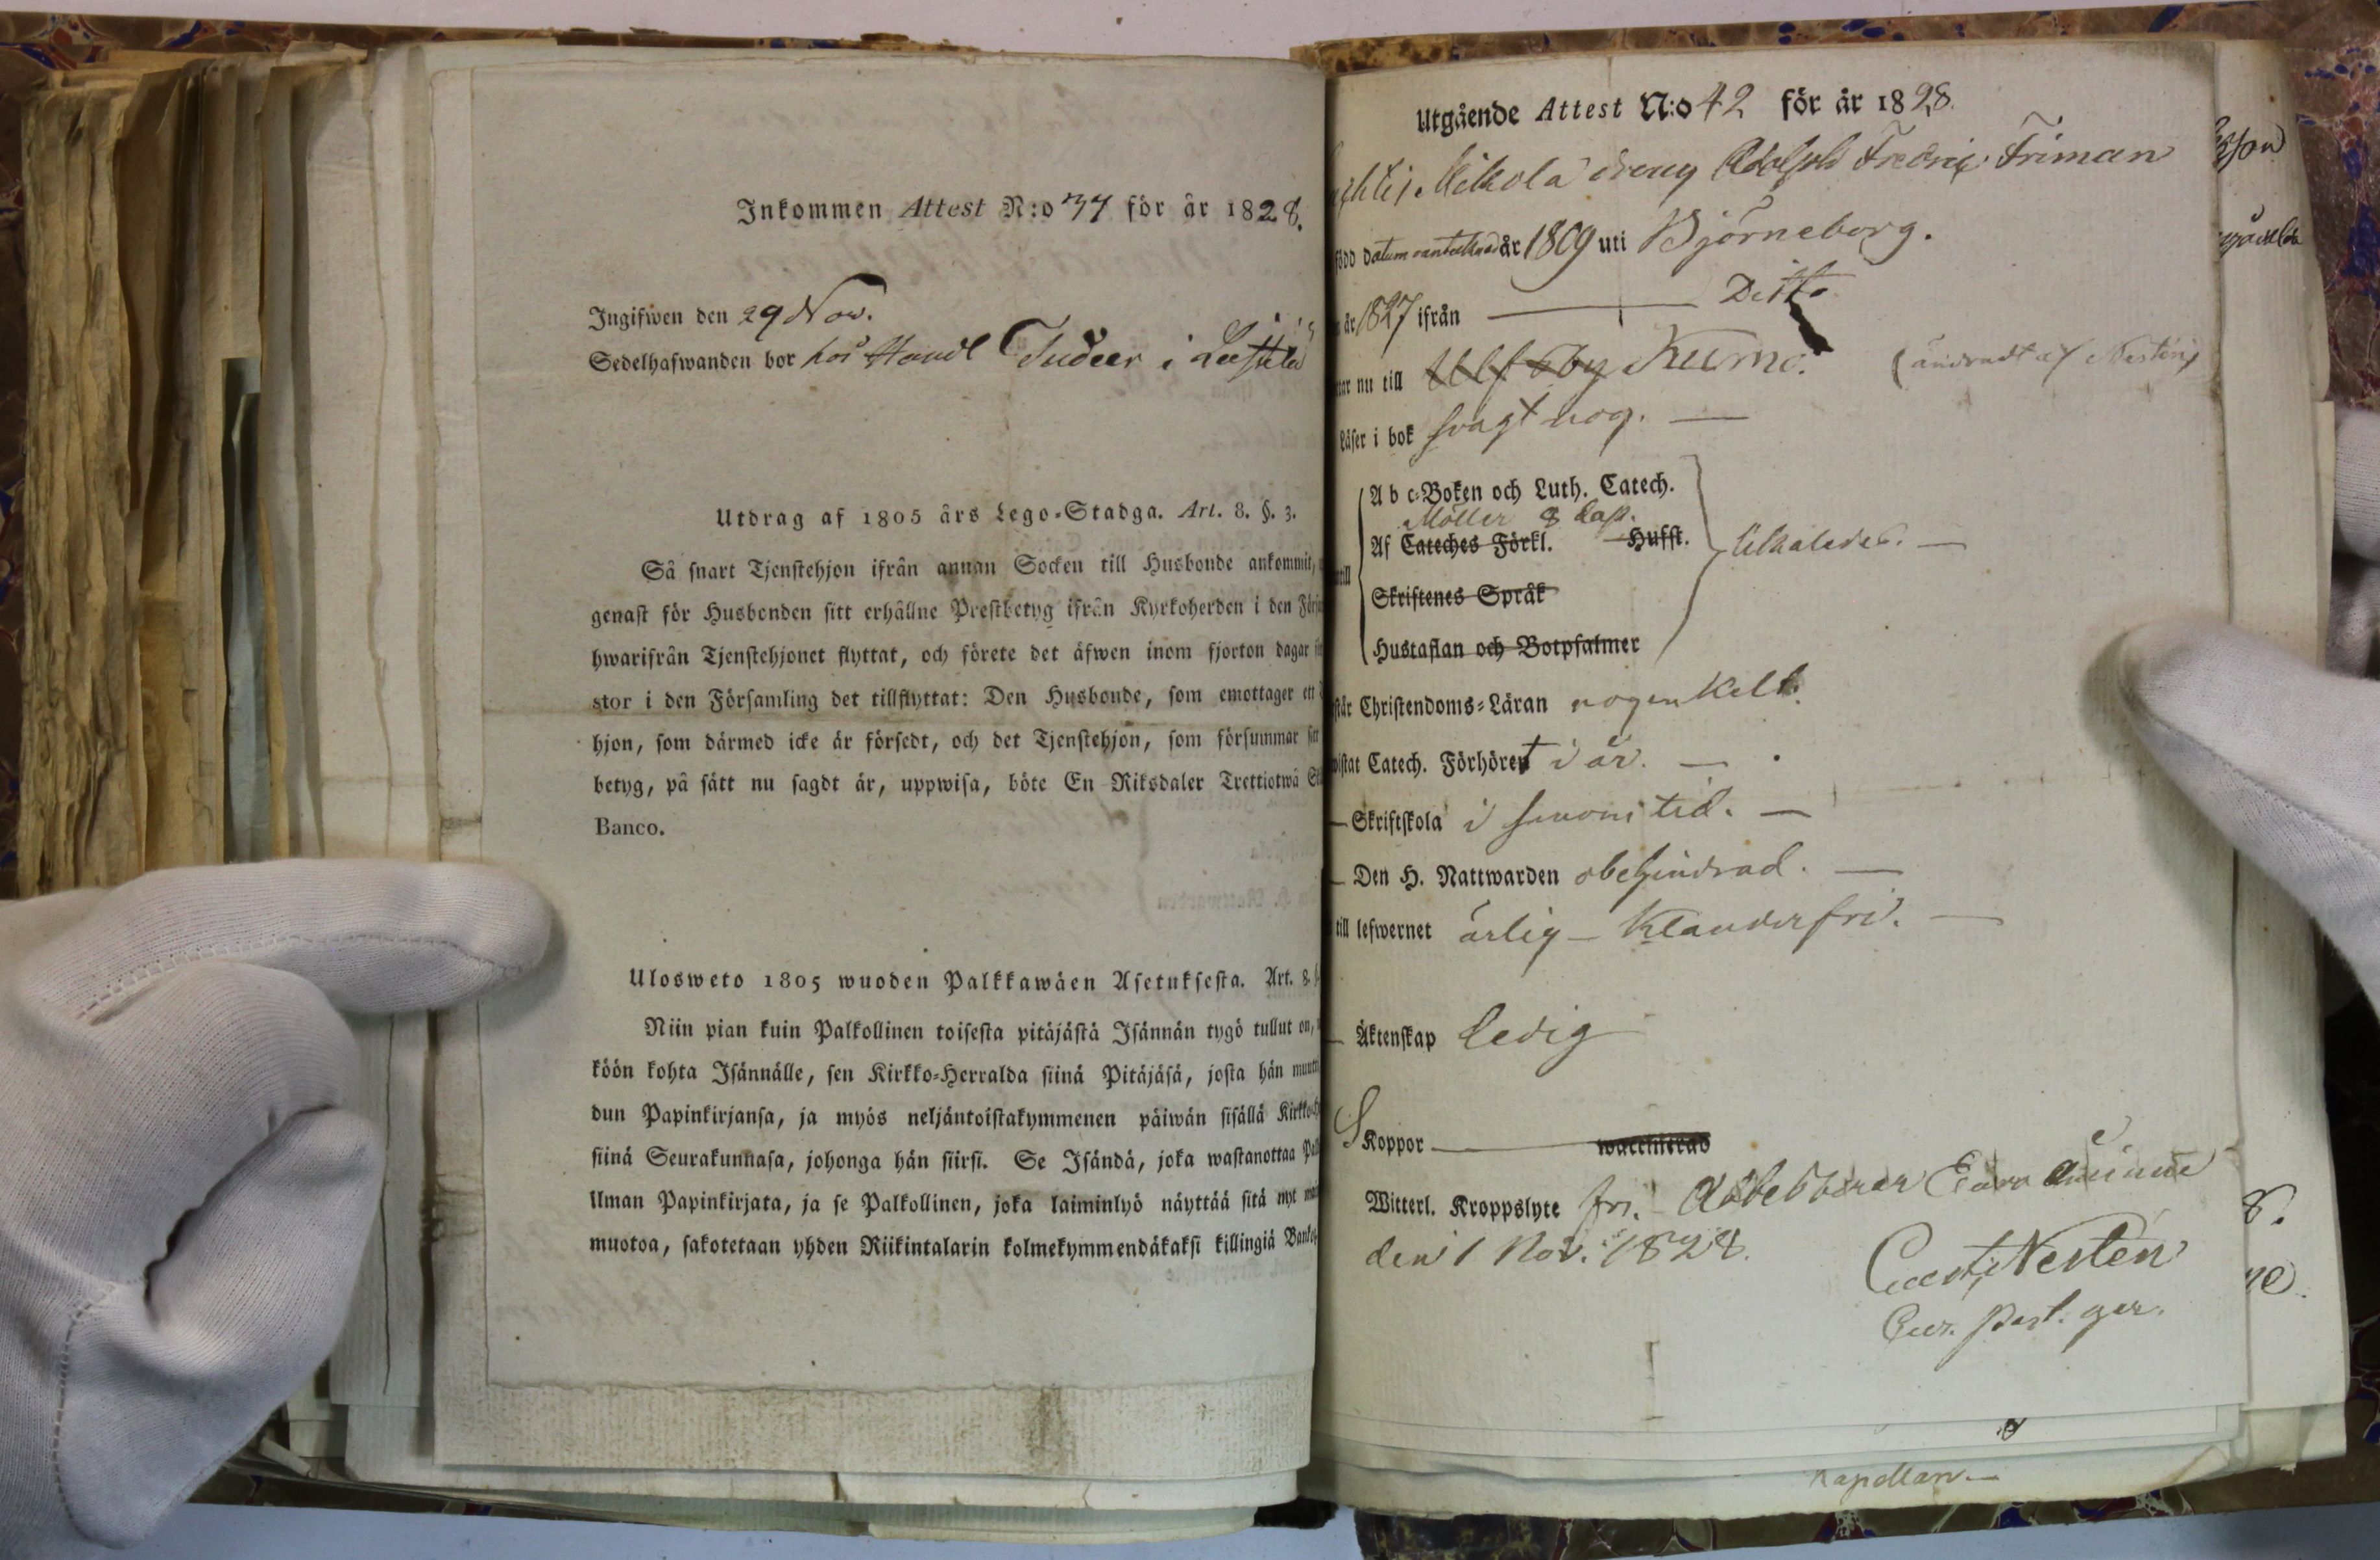 Inkommen Attest N:o 37 för år 1828.
Ingifwen den 29 Nov.
Sedelhafwanden bor hos Handl Tudeer i
Utdrag af 1805 års Lego-Stadga. Art. 8. §. 3.
Så snart Tjenstehjon ifrån annan Socken till Husbonde ankommit,
genast för Husbonden sitt erhållne Prestbetyg ifrån Kyrkoherden i den
hwarifrån Tjenstehjonet flyttat, och förete det äfwen inom fjorton dagar
stor i den Församling det tillflyttat: Den Husbonde, som emottager ett
hjon, som därmed icke är försedt, och det Tjenstehjon, som försummar sitt
betyg, på sätt nu sagdt är, uppwisa, böte En Riksdaler Trettiotwå
Banco.
Ulosweto 1805 wuoden Palkkawäen Asetuksesta. Art. 8.
Niin pian kuin Palkollinen toisesta pitäjästä Isännän tygö tullut on,
köön kohta Isännälle, sen Kirkko-Herralda siinä Pitäjäsä, josta hän
dun Papinkirjansa, ja myös neljäntoistakymmenen päiwän sisällä
siinä Seurakunnasa, johonga hän siirsi. Se Isändä, joka wastanottaa
Ilman Papinkirjata, ja se Palkollinen, joka laiminlyö näyttää sitä nyt
muotoa, sakotetaan yhden Riikintalarin kolmekymmendäkaksi killingiä
Utgående Attest N:o 42 för år 1828.
Mikola dreng Adolph Fredric Friman
född datum oantecknad år 1809 uti Björneborg.
år 1827 ifrån — Ditto
nu till Ulfsby Kumo. (ändradt af Nestén)
Läser i bok svagt nog. —
A b c-Boken och Luth. Catech.
Möller
Af Cateches Förkl. Hufst.
Skriftenes Språk
Hustaflan och Botpsalmer
Christendoms-Läran nogen
Catech. Förhöret i år. —
— Skriftskola i sinom tid. —
— Den H. Nattwarden obehindrad. —
till lefwernet ärlig — klanderfri. —
— Äktenskap ledig
Koppor — waccinerad
Witterl. Kroppslyte fri. Eura
den 1 Nov. 1828.
Nestén
Past.
Kapellan. —